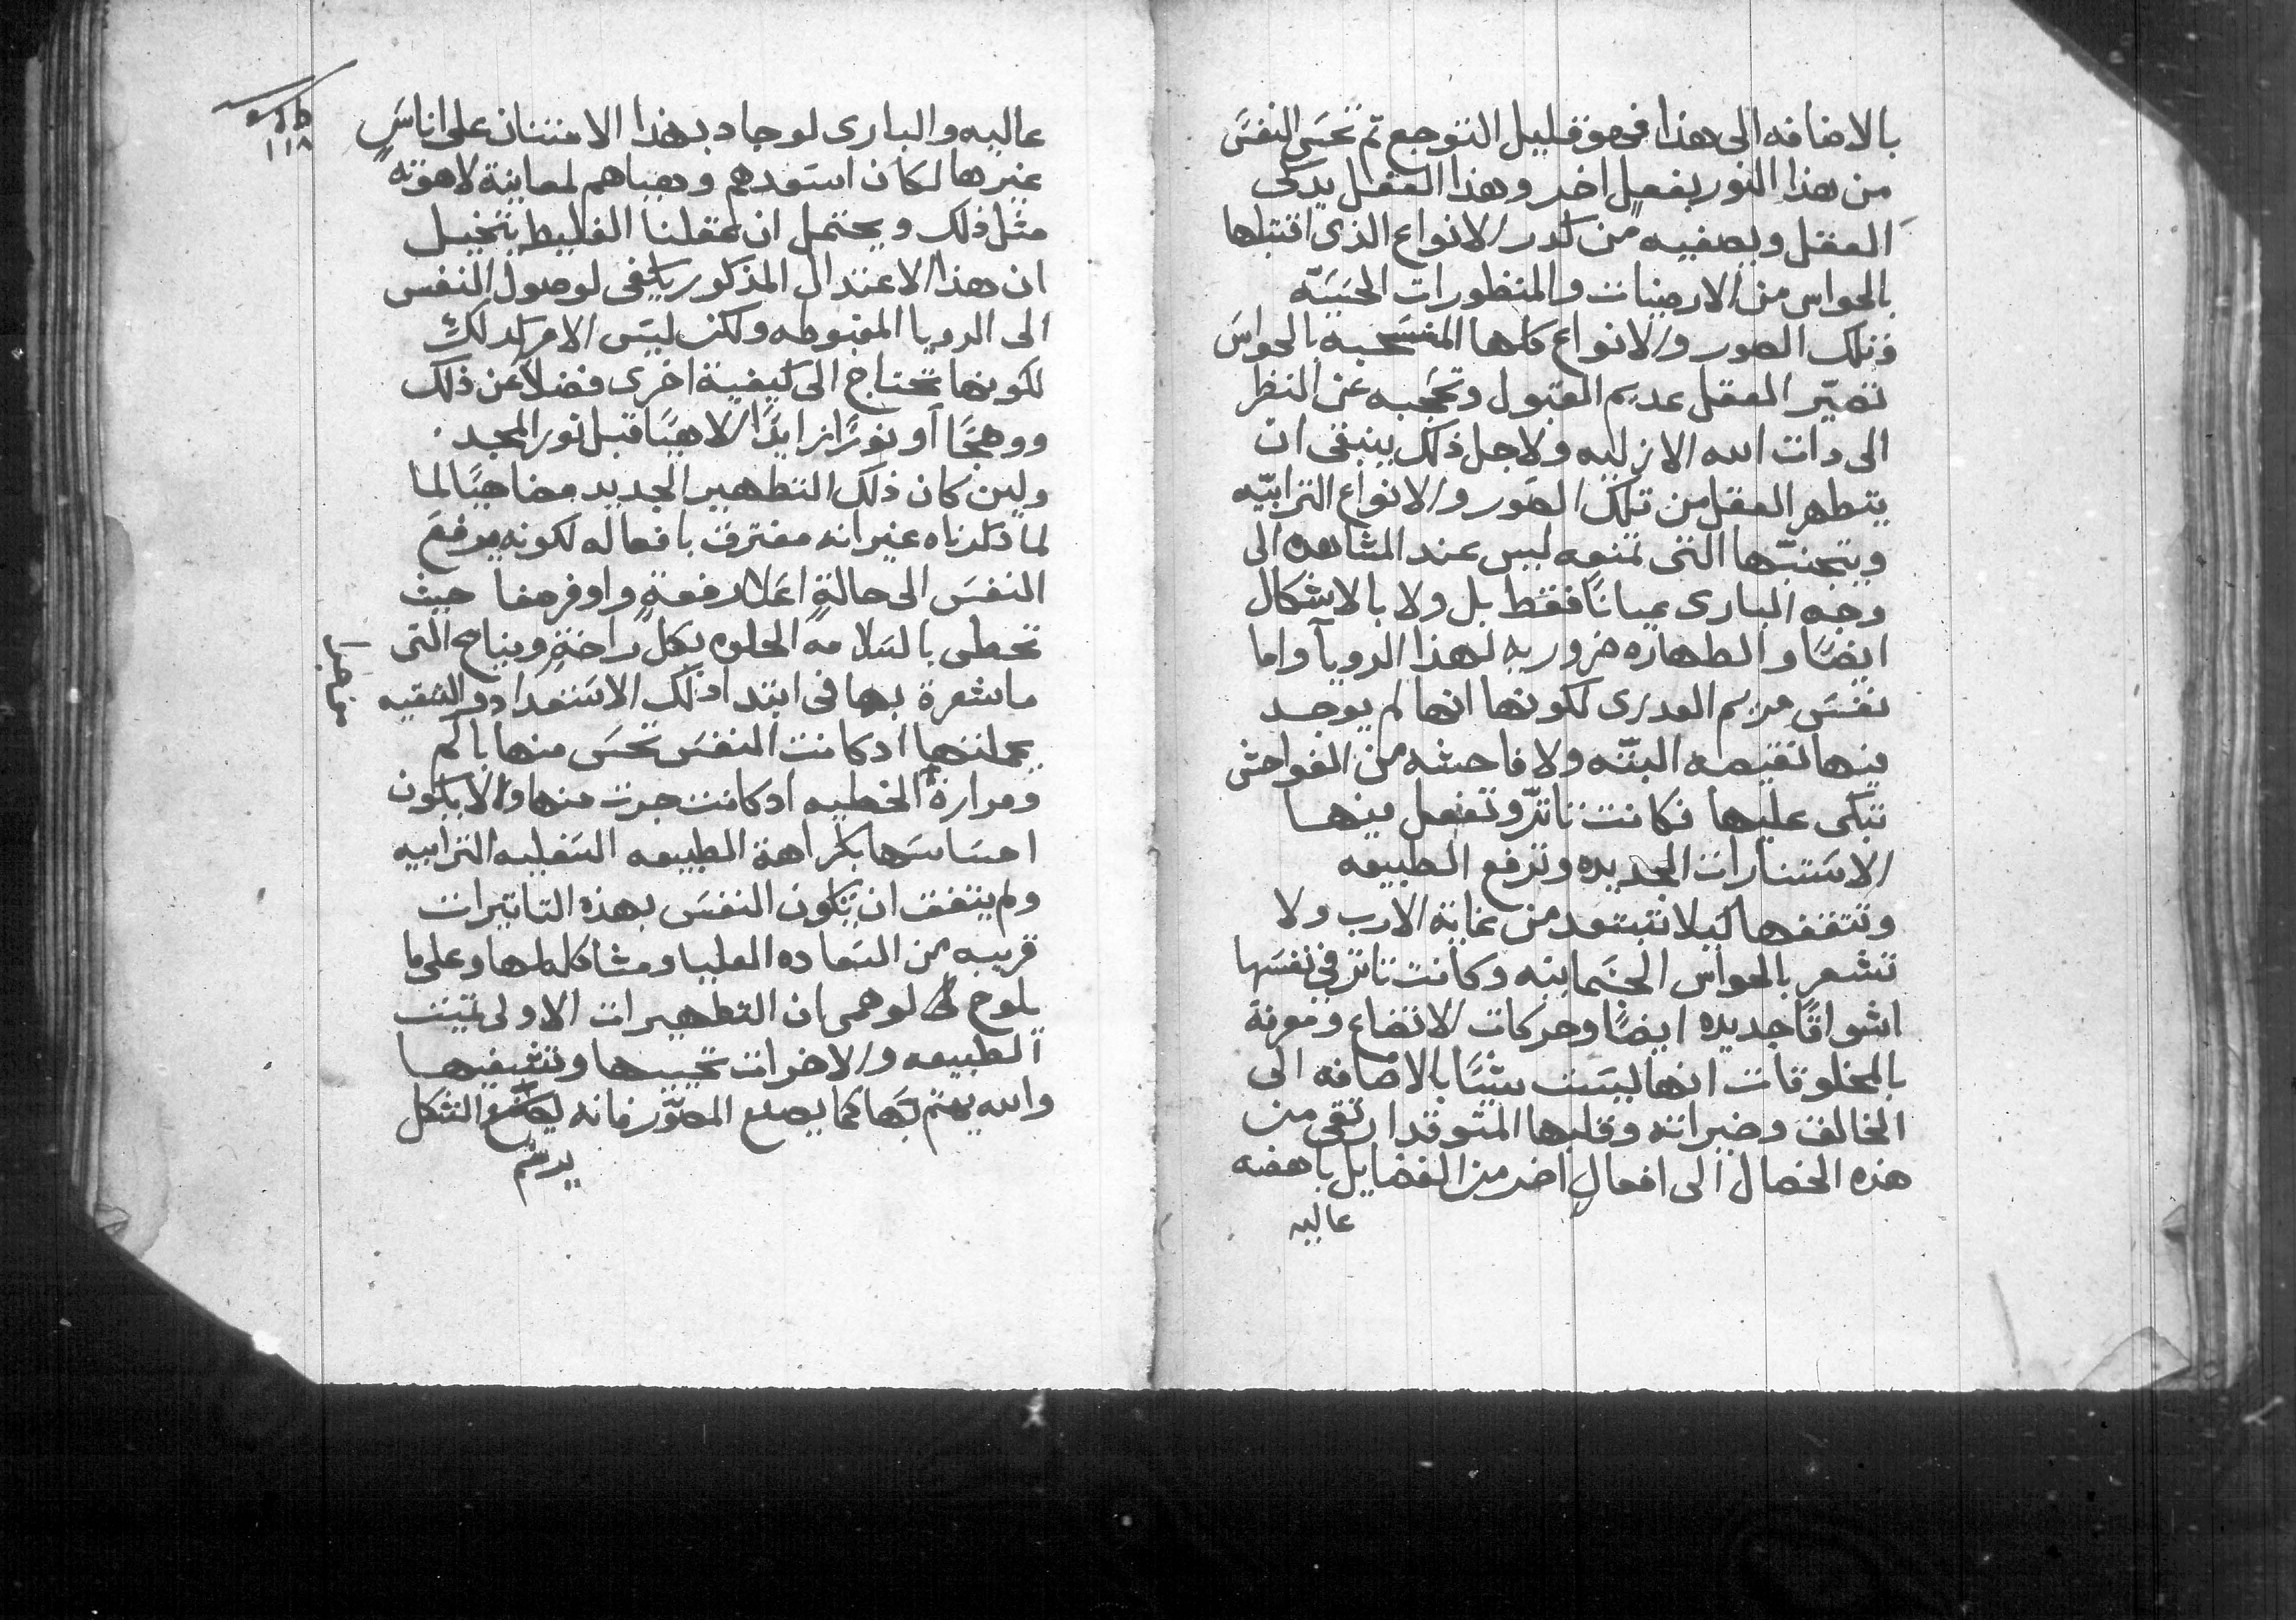 بالاضافه الى هذا فهو قليل التوجع ثم تحسَ النفسَ
من هذا النور بفعلٍ اخر وهذا الفعل يذكى
العقل ويصفيه من كدر الانواع الذى اقتبلها
بالحواس من الارضيات والمنظورات الحسَيّه
فتلك الصور والانواع كلها المنسَحبه بالحواسَ
تصيّر العقل عديم القبول وتحجبه عن النظر
الى دات الله الازليه ولاجل ذلك ينبغى ان
يتطهر العقل من تلك الصَور والانواع الترابيّه
ويتجنبّها التى تمنعه ليس عند المشاهده الى
وجه البارى عيانًا فقط بل ولا بالاشكال
ايضًا والطهاره ضروريه لهذا الرويآ واما
نفسَ مريم العدرى لكونها انها لم يوجد
فيها نقيصه البتّه ولا فاحشه من الفواحش
تبكى عليها فكانت تاتّر وتفعل فيها
الاسَتنارات الجديده وترفع الطبيعه
وتتقفها ليلا تبتعد من غاية الارب ولا
تشعر بالحواس الجسَمانيه وكانت تاتر فى نفسَها
اشواقًا جديده ايضًا وحركات الاتضاع ومعرفة
بالمخلوقات انها ليسَت شيًا بالاضافه الى
الخالق وخيراته وقلبها المتوقد ارتقى من
هذه الخصال الى افعالٍ اخر من الفضايل باهضه
عاليه
١١٨
عاليه والبارى لو جاد بهذا الامتنان على اناسٍ
غيرها لكان اسَتعدهم وهياهم لمعاينة لاهوته
مثل ذلك ويحتمل ان عقلنا الغليط يتخيل
ان هذا الاعتدال المذكور يكفى لوصول النفس
الى الرويا المغبوطه ولكن ليسَ الامر كدلك
لكونها تحتاج الى كيفية اخرى فضلاً عن ذلك
ووهجًا أو نورًا زايدًا الاهيًا قبل نور المجد
ولين كان ذلك التطهير الجديد مضاهيًا لما
لما ذكرناه غير انه مفترق بافعاله لكونه يرفعَ
النفسَ الى حالةٍ اعلا رفعةٍ واوفر صفا حيث
تحطى بالسَلامه الحلوه بكل راحةٍ ونياح التى
ما شعرة بها فى ابتدا ذلك الاسَتعداد والتنقيه
بجملتها اد كانت النفسَ تحسَ منها بالم
ومرارة الخطيه اد كانت جرت منها والا يكون
احسَاسَها بكراهة الطبيعه السَفليه الترابيه
ولم يتفق ان تكون النفسَ بهذه التاتيرات
قريبه من السَعاده العليا ومشاكله لها وعلى ما
يلوح لوهمى ان التطهيرات الاولى تميت
الطبيعه والاخرات تحييها وتشفيها
والله يهتم بها كما يصنع المصَوّر فانه الشكل
يرسَم